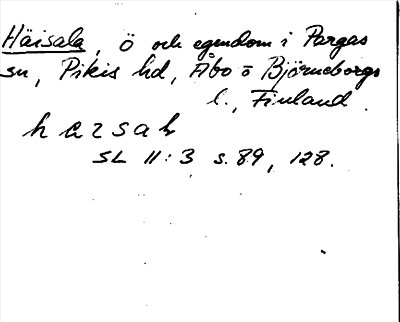 Häisala, ö och egendom i Pargas
sn, Pikis hd, Åbo o Björneborgs
l., Finland.
h e z s a h
SL 11:3 s. 89, 128.